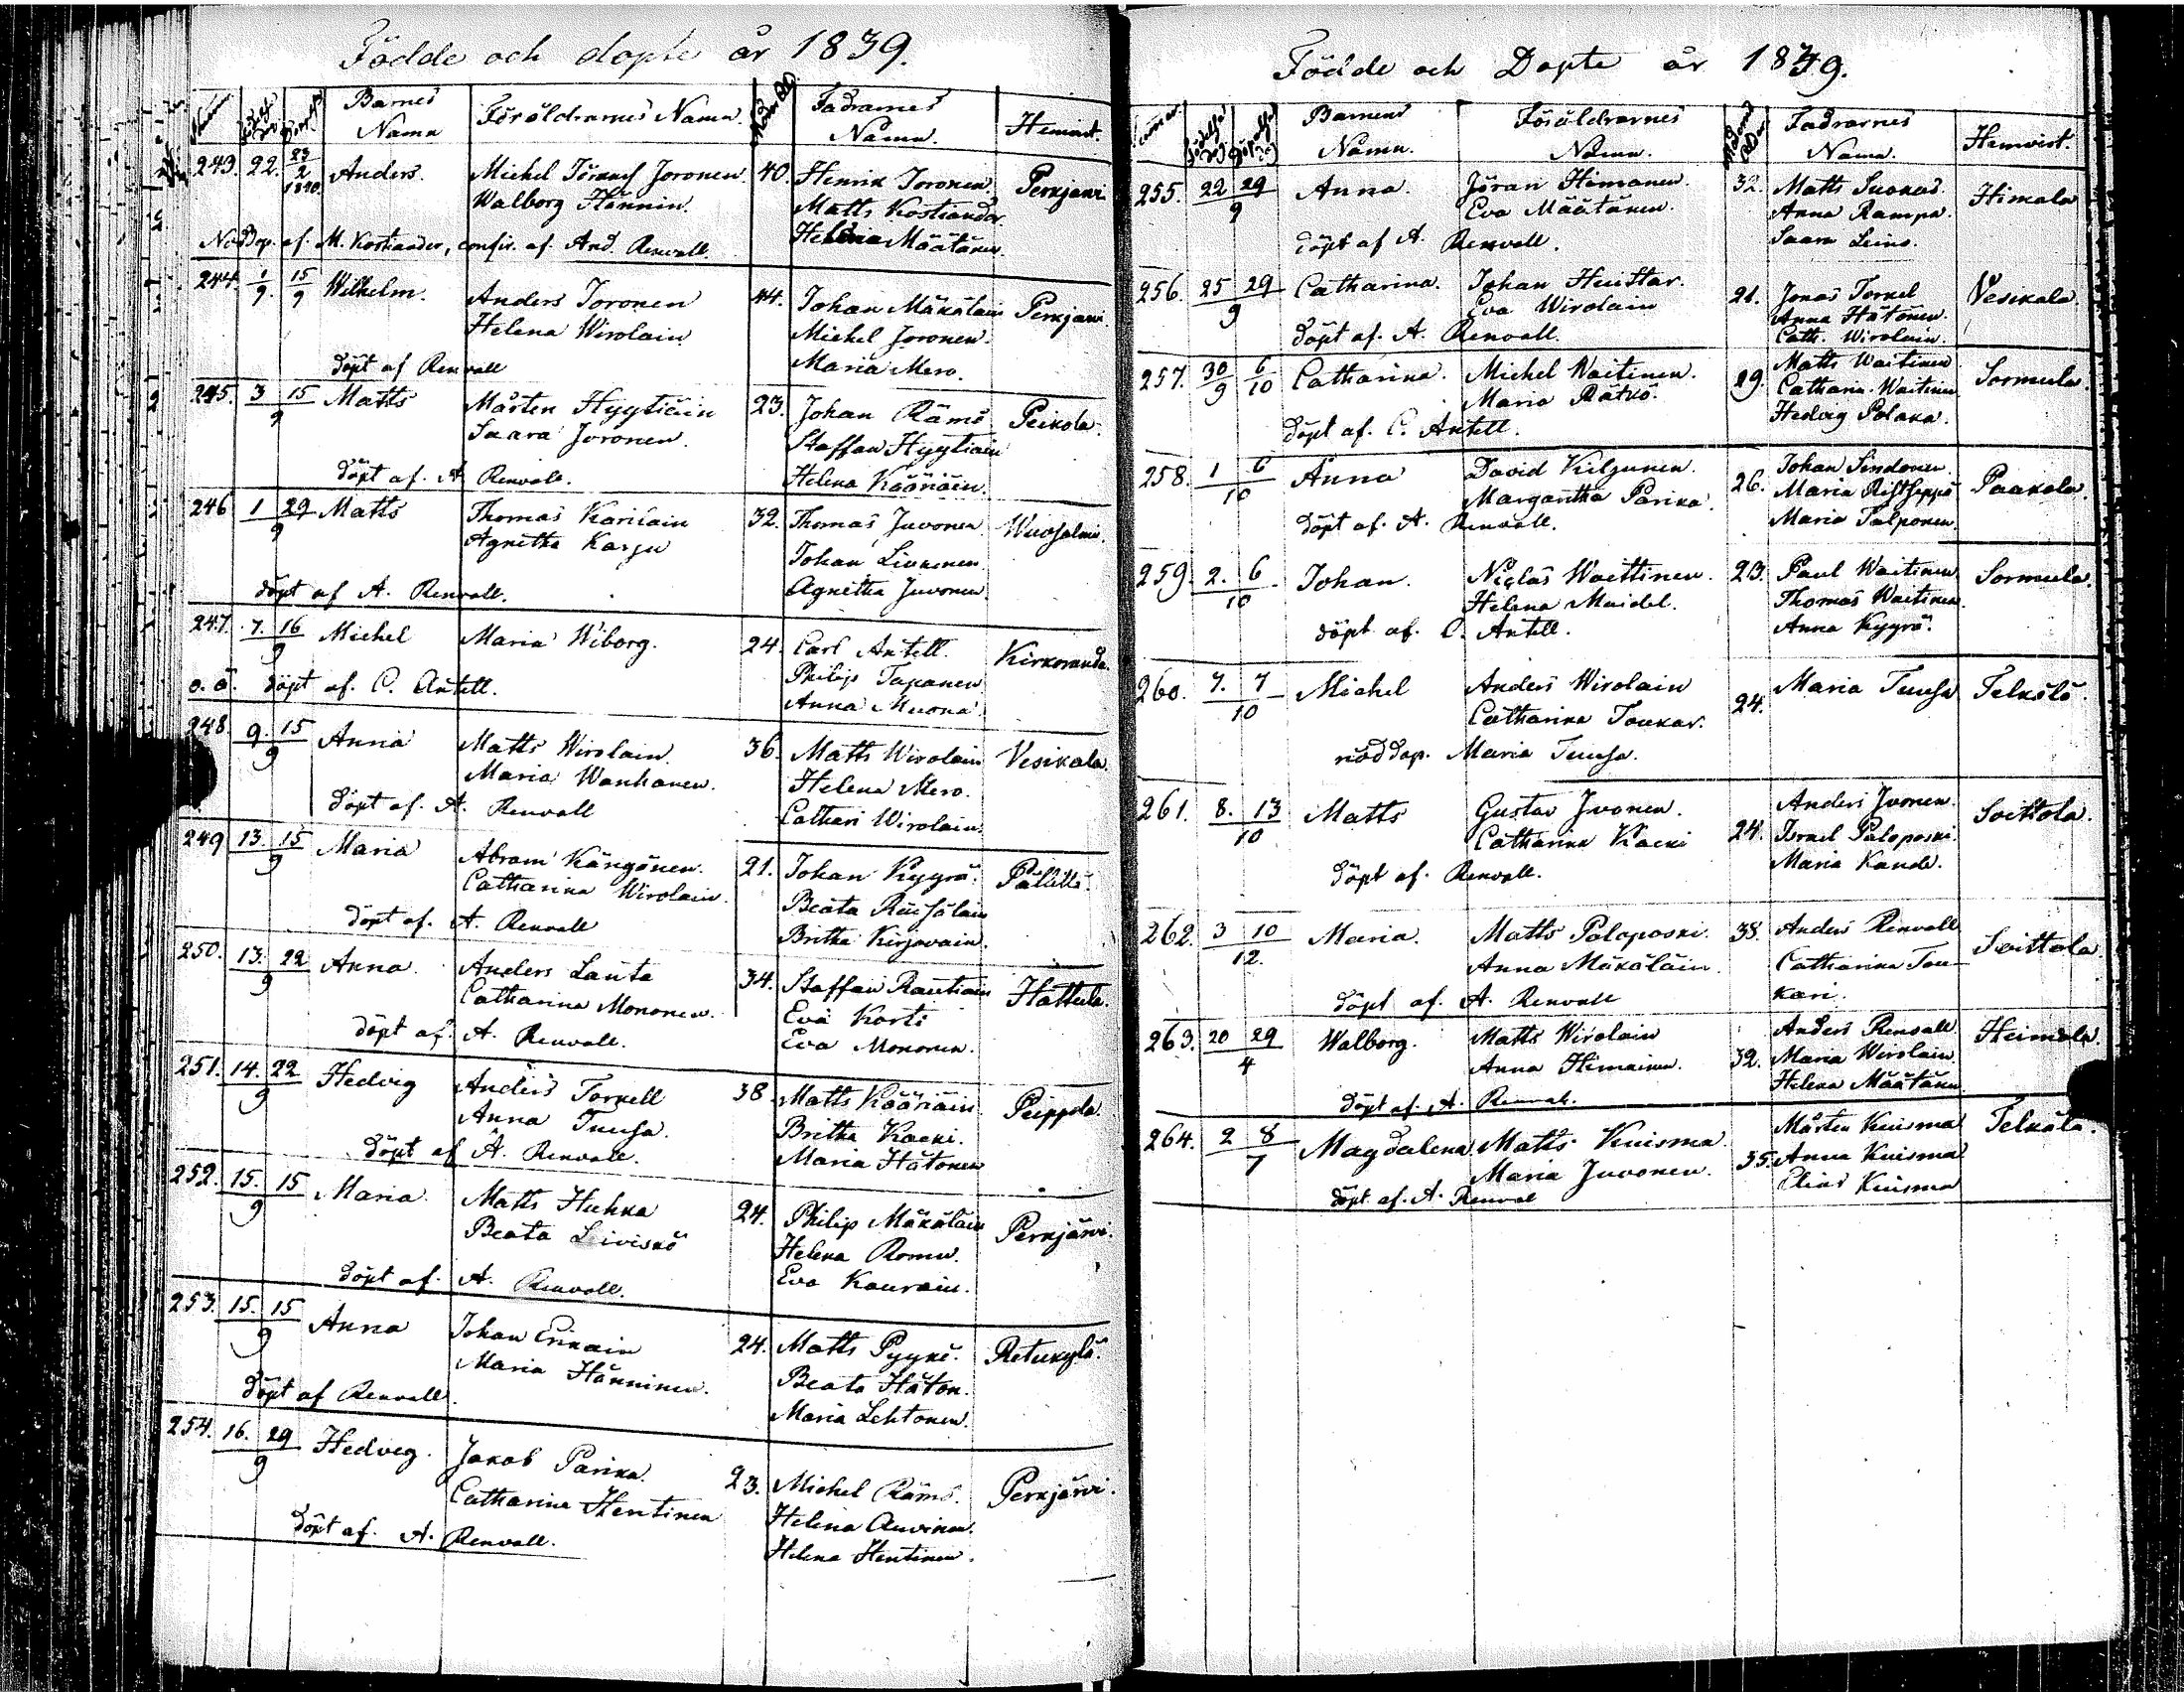 Födde och döpte år 1839.
Barnes Namn Föräldrarnes Namn. Fadrarnes Namn. Hemvist.
243. 22. 23/2 1840. Anders. Michel Joronen. 40. Henrik Joronen. Perkjärvi
Walborg Hännin. Matts Kostiander
NödDop. af M. Kostiander, confir. af And. Renvall. Helena Määtänen
244. 1/9. 15/9 Wilhelm. Anders Joronen 44. Johan Mäkäläin Perkjärvi.
Helena Wirolain Michel Joronen.
döpt af Renvall Maria Mero.
245. 3 15/9 Matts Mårten Hyytiäin 23. Johan Rämö Peikola.
Saara Joronen. Staffan Hyytiäin
döpt af. A Renvall. Helena Kääriäin.
246 1 29/9 Matts Thomas Karilain 32. Thomas Juvonen Wuosalmi.
Agnetha Karju Johan Livonen.
döpt af A. Renvall. Agnetha Juvonen.
247. 7. 16/9 Michel Maria Wiborg. 24. Carl Antell. Kirkoranda.
o. ä. döpt af. C. Antell. Philip Tapanen
Anna Muona.
248. 9. 15/9 Anna Matts Wirolain. 36. Matts Wirolain Vesikala.
Maria Wanhanen. Helena Mero.
döpt af. A. Renvall Cathari Wirolain.
249 13. 15/9 Maria Abram Kängönen. 21. Johan Kyyrä. Pälätti.
Catharina Wirolain. Beata Räisälain
döpt af. A. Renvall Britha Kirjavain.
250. 13. 22/9 Anna. Anders Lanta 34. Staffan Rautiain Hattula.
Catharina Mononen. Eva Korti
döpt af. A. Renvall. Eva Mononen.
251. 14. 22/9 Hedvig Anders Torkell 38. Matts Kääriäin Peippola.
Anna Tuusa. Britha Kaeki.
döpt af A. Renvall. Maria Hätönen
252. 15. 15/9 Maria. Matts Huhka 24. Philip Mäkäläin Perkjärvi.
Beata Leiviskö Helena Romu.
döpt af. A. Renvall. Eva Kaurain.
253. 15. 15/9 Anna Johan Erikain 24. Matts Pyyki. Retukylä.
Maria Hänninen. Beata Häton.
döpt af Renvall. Maria Lehtonen.
254. 16. 29/9 Hedvig. Jakob Parika. 23. Michel Rämö. Perkjärvi.
Catharina Hentinen Helena Auvinen.
döpt af. A. Renvall. Helena Hentinen.
Födde och Döpte år 1839.
Barnens Namn. Föräldrarnes Namn. Fadrarnes Namn. Hemvist.
255. 22 29/9 Anna. Jöran Himanen. 32. Matts Suokas. Himala
Eva Määtänen. Anna Rampa.
döpt af A. Renvall. Saara Leino.
256. 25 29/9 Catharina. Johan Huistar. 21. Jonas Torkel Vesikala.
Eva Wirolain Anna Hätönen.
döpt af. A. Renvall. Cath. Wirolain.
257. 30/9 6/10 Catharina. Michel Waitinen. 29. Matts Waitinen Sormula.
Maria Rätkö. Cathana Waitinen
döpt af. C. Antell. Hedvig Polaka.
258. 1 6/10 Anna David Kiljunen. 26. Johan Sindonen. Paakola
Margaretha Parika. Maria Ristseppä
döpt af. A. Renvall. Maria Talponen
259. 2. 6/10 Johan. Niclas Waittinen. 23. Paul Waitinen Sormula.
Helena Maidel. Thomas Waitinen.
döpt af. C. Antell. Anna Kyyrä.
260. 7. 7/10 Michel Anders Wirolain 24. Maria Tuusa Telkälä
Catharina Toukar.
nöddop. Maria Tuusa.
261. 8. 13/10 Matts Gustav Ivonen. 24. Anders Ivonen. Soittola.
Catharina Kaeki Israel Paloposki.
döpt af. Renvall. Maria Kande.
262. 3 10/12. Maria. Matts Paloposki. 38. Anders Renvall Soittola.
Anna Mäkäläin. Catharina Tou
döpt af. A. Renvall kari.
263. 20 29/4 Walborg. Matts Wirolain 32. Anders Renvall Heimola.
Anna Himainen. Maria Wirolain
döpt af. A. Renvall. Helena Määtänen
264. 2 8/7 Magdalena Matts Kuisma. 35. Mårten Kuisma Telkälä.
Maria Juvonen. Anna Kuisma
döpt af. A. Renval Elias Kuisma